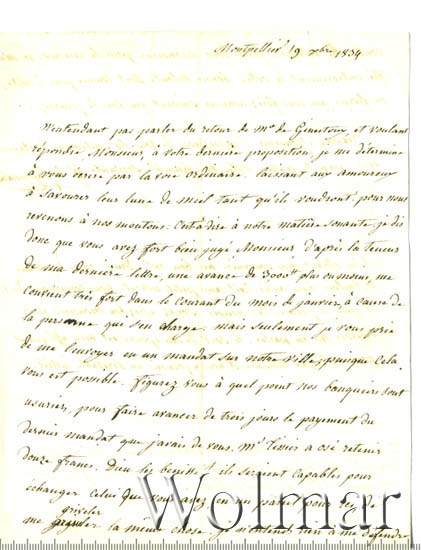 Montpellier 19 xbre 1834
N'entendant pas parler du retour de Mr de Ginestoux, et voulant
répondre Monsieur, à votre dernière proposition, je me détermine
à vous écrire par la voie ordinaire. laissant aux amoureux
à savourer leur lune de miel tant qu'ils voudront, pour nous
revenons à nos moutons. C'est à dire à notre matière sonante, je dis
donc que vous avez fort bien jugé, Monsieur, d'après la teneur
de ma dernière lettre, une avance de 3000# plus ou moins, me
convient très fort dans le courant du mois de janvier, à cause de
la personne qui s'en charge. mais seulement je vous prie
de me l'envoyer en un mandat sur notre ville, puisque cela
vous est possible. figurez vous à quel point nos banquiers sont
usuriers, pour faire avancer de trois jours le payement du
dernier mandat que j'avais de vous. Mr Tissier a osé retenir
douze francs. Dieu les bénisse! ils seraient capables pour
échanger celui que vous avez en un
me la même chose. je n'entends rien à me défendre
Wolmar